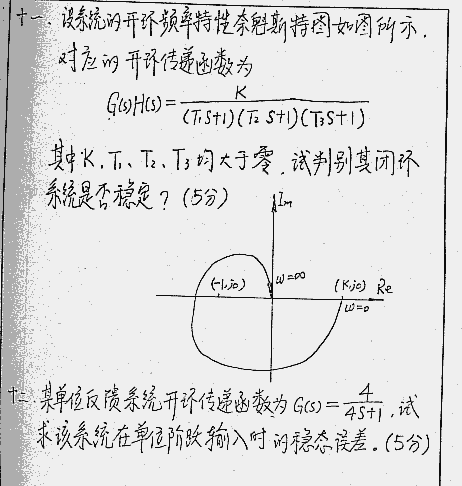 十一、设系统的开环频率特性奈魁斯特图如图所示.
对应的开环传递函数为
G(s)H(s)= K / (T₁S+1)(T₂S+1)(T₃S+1)
其中K、T₁、T₂、T₃均大于零,试判别其闭环
系统是否稳定?(5分)
Im
(-1,j0) ω=∞ (K,j0) Re
ω=0
十二、某单位反馈系统开环传递函数为G(s)= 4 / 4S+1 ,试
求该系统在单位阶跃输入时的稳态误差.(5分)